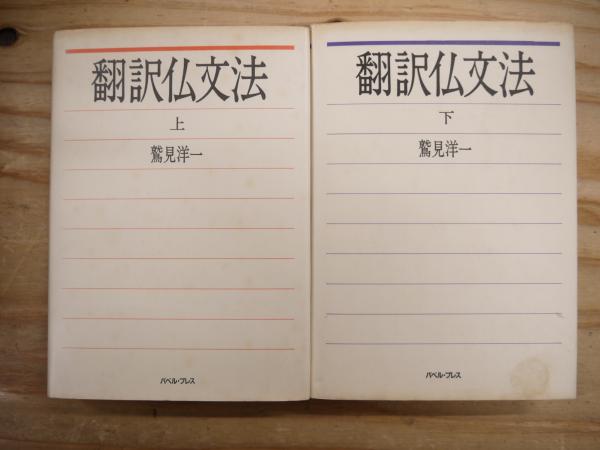 翻訳仏文法
上
鷲見洋一
バベル・プレス
翻訳仏文法
下
鷲見洋一
バベル・プレス